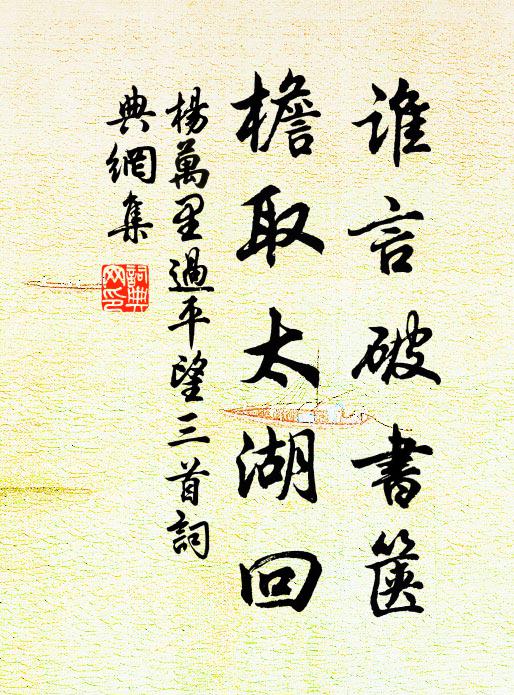 谁言破書箧
檐取太湖回
楊萬里過平望三首詞
典網集
詞典
网印